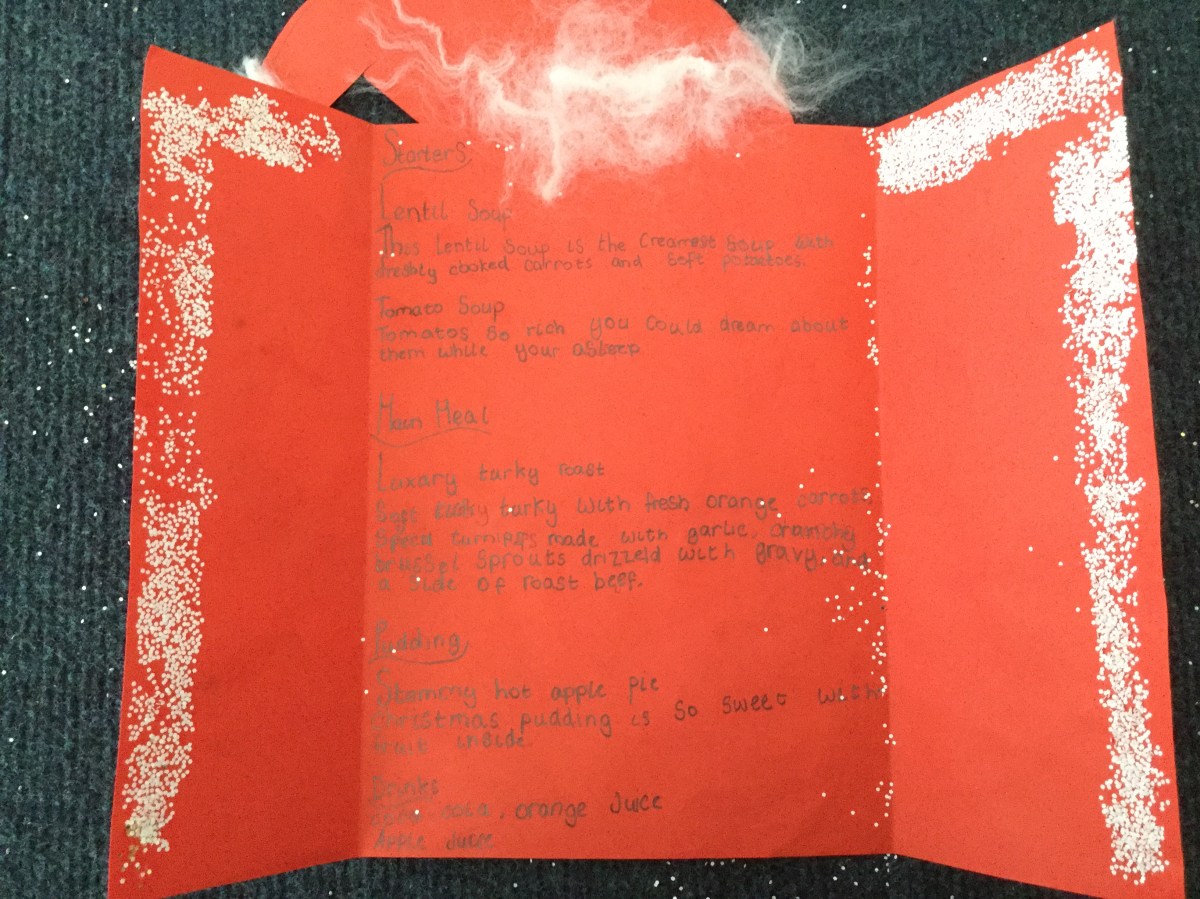 Starters
Lentil Soup
This lentil Soup is the Creamest Soup with
freshly cooked carrots and soft potatoes.
Tomato Soup
Tomatos So rich you Could dream about
them while your asleep
Main Meal
Luxary turky roast
Soft turky with fresh orange carrots
turnips made with garlic, crunchy
brussel Sprouts drizzeld with gravy. and
a Side of roast beef.
Pudding
Steameny hot apple pie
Christmas pudding is So Sweet with
fruit inside.
Drinks
cola, orange Juice
Apple Juice